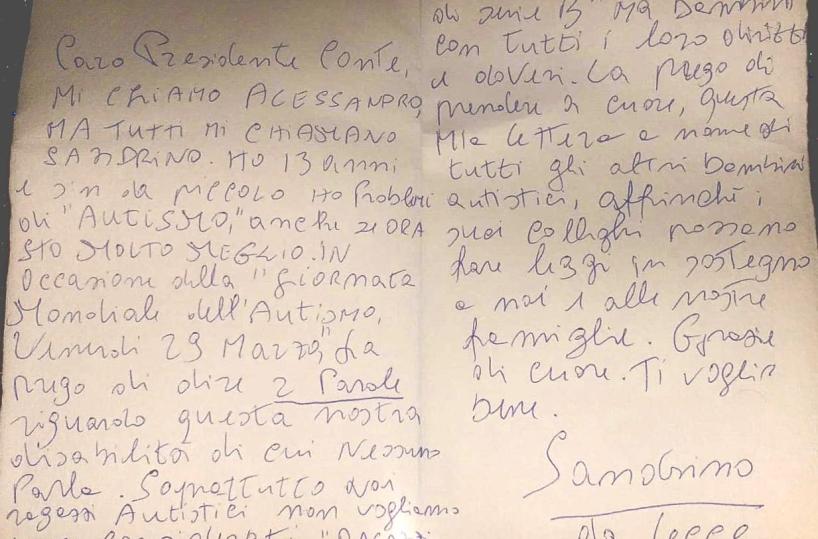 Caro Presidente Conte,
MI CHIAMO ALESSANDRO,
MA TUTTI MI CHIAMANO
SANDRINO. HO 13 anni
e sin da piccolo HO Problemi
di "AUTISMO," anche se ORA
STO MOLTO MEGLIO. IN
Occasione della "Giornata
Mondiale dell'Autismo,
Venerdi 29 Marzo," La
prego di dire 2 Parole
riguardo questa nostra
disabilità di cui Nessuno
Parla. Soprattutto noi
ragazzi Autistici non vogliamo
"Ragazzi
di serie B" Ma Bambini
con tutti i loro diritti
e doveri. La prego di
prendere a cuore, questa
Mia lettera a nome di
tutti gli altri bambini
autistici, affinché i
suoi colleghi possano
fare leggi in sostegno
a noi e alle nostre
famiglie. Grazie
di cuore. Ti voglio
bene.
Sandrino
da Lecce